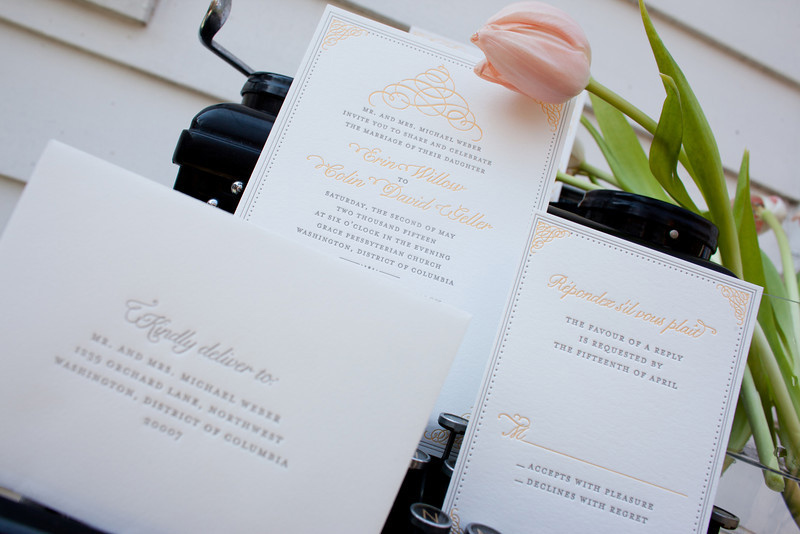 MR. AND MRS. MICHAEL WEBER
INVITE YOU TO SHARE AND CELEBRATE
THE MARRIAGE OF THEIR DAUGHTER
Erin Willow
TO
Colin David Geller
SATURDAY, THE SECOND OF MAY
TWO THOUSAND FIFTEEN
AT SIX O'CLOCK IN THE EVENING
GRACE PRESBYTERIAN CHURCH
WASHINGTON, DISTRICT OF COLUMBIA
Kindly deliver to:
MR. AND MRS. MICHAEL WEBER
1235 ORCHARD LANE, NORTHWEST
WASHINGTON, DISTRICT OF COLUMBIA
20007
Répondez s'il vous plait
THE FAVOUR OF A REPLY
IS REQUESTED BY
THE FIFTEENTH OF APRIL
M
ACCEPTS WITH PLEASURE
DECLINES WITH REGRET
N